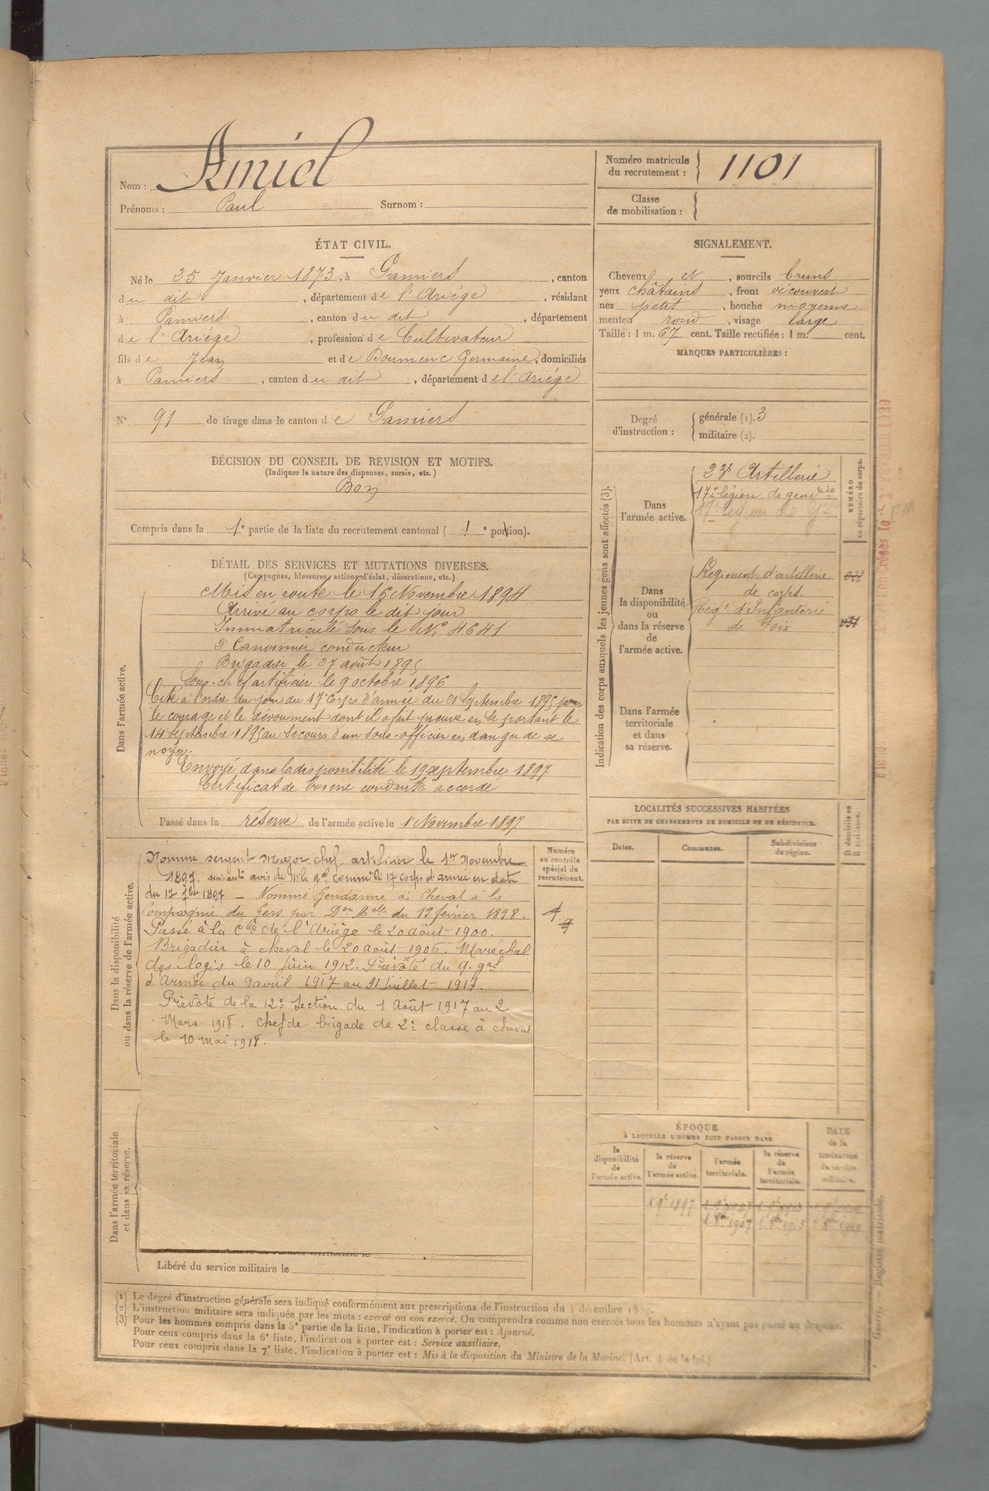 Nom : Amiel
Prénoms : Paul Surnom :
Numéro matricule
du recrutement : 1101
Classe
de mobilisation :
ÉTAT CIVIL.
Né le 25 Janvier 1873, à Pamiers, canton
du dit, département de l'Ariége, résidant
à Pamiers, canton du dit, département
de l'Ariége, profession de Cultivateur
fils de Jean et de Boumenc Germaine, domiciliés
à Pamiers, canton du dit, département de l'Ariége
N° 91 de tirage dans le canton de Pamiers
SIGNALEMENT.
Cheveux et, sourcils bruns
yeux châtains, front découvert
nez petit, bouche moyenne
menton rond, visage large
Taille : 1 m. 67 cent. Taille rectifiée : 1 m. cent.
MARQUES PARTICULIÈRES :
Degré
d'instruction :
générale (1). 3
militaire (2).
DÉCISION DU CONSEIL DE REVISION ET MOTIFS.
(Indiquer la nature des dispenses, sursis, etc.)
Bon
Compris dans la 1e partie de la liste du recrutement cantonal ( 1e portion).
DÉTAIL DES SERVICES ET MUTATIONS DIVERSES.
(Campagnes, blessures, actions d'éclat, décorations, etc.)
Dans l'armée active.
Mis en route le 16 Novembre 1894
Arrivé au corps le dit jour
Immatriculé sous le N° 4641
2e Canonnier conducteur
Brigadier le 27 août 1895
Sous-chef artificier le 9 octobre 1896
Cité à l'ordre du jour du 17e Corps d'armée du 21 Septembre 1895 pour
le courage et le dévouement dont il a fait preuve en se portant le
14 septembre 1895 au secours d'un sous-officier en danger de se
noyer.
Envoyé dans la disponibilité le 19 septembre 1897
Certificat de bonne conduite accordé
Passé dans la réserve de l'armée active le 1 Novembre 1897
Dans la disponibilité
ou dans la réserve de l'armée active.
Nommé sergent Major chef artificier le 1er Novembre
1897, suivant avis de Mr le Gal Comm le 17e corps d'armée en date
du 12 1897 – Nommé Gendarme à Cheval à la
Compagnie du Gers par Don Melle du 12 février 1898.
Passé à la Cie de l'Ariège le 20 août 1900.
Brigadier à cheval le 20 août 1906. Maréchal
des logis le 10 juin 1912. Prévôté du q. gal
d'Armée du 9 avril 1917 au 31 juillet 1917.
Prévôté de la 12e Section du 1 Août 1917 au 2
Mars 1918. Chef de brigade de 2e classe à cheval
le 10 mai 1918.
Numéro
au contrôle
spécial du
recrutement.
Dans l'armée territoriale
et dans sa réserve.
Libéré du service militaire le
Indication des corps auxquels les jeunes gens sont affectés (3).
NUMÉRO
au répertoire du corps.
Dans
l'armée active.
23e Artillerie
17e légion de gendrie
Dans
la disponibilité
ou
dans la réserve
de
l'armée active.
Régiment d'artillerie
de corps
Régt d'Infanterie
de Foix
Dans l'armée
territoriale
et dans
sa réserve.
LOCALITÉS SUCCESSIVES HABITÉES
PAR SUITE DE CHANGEMENTS DE DOMICILE OU DE RÉSIDENCE.
Dates.
Communes.
Subdivisions
de région.
D domicile ou
R résidence.
ÉPOQUE
À LAQUELLE L'HOMME DOIT PASSER DANS
la
disponibilité
de
l'armée active.
la réserve
de
l'armée active.
l'armée
territoriale.
la réserve
de
l'armée
territoriale.
DATE
de la
libération
du service
militaire.
(1) Le degré d'instruction générale sera indiqué conformément aux prescriptions de l'instruction du 4 décembre 1889.
(2) L'instruction militaire sera indiquée par les mots : exercé ou non exercé. On comprendra comme non exercés tous les hommes n'ayant pas passé au drapeau.
(3) Pour les hommes compris dans la 5e partie de la liste, l'indication à porter est : Ajourné.
Pour ceux compris dans la 6e liste, l'indication à porter est : Service auxiliaire.
Pour ceux compris dans la 7e liste, l'indication à porter est : Mis à la disposition du Ministre de la Marine. (Art. de la loi.)